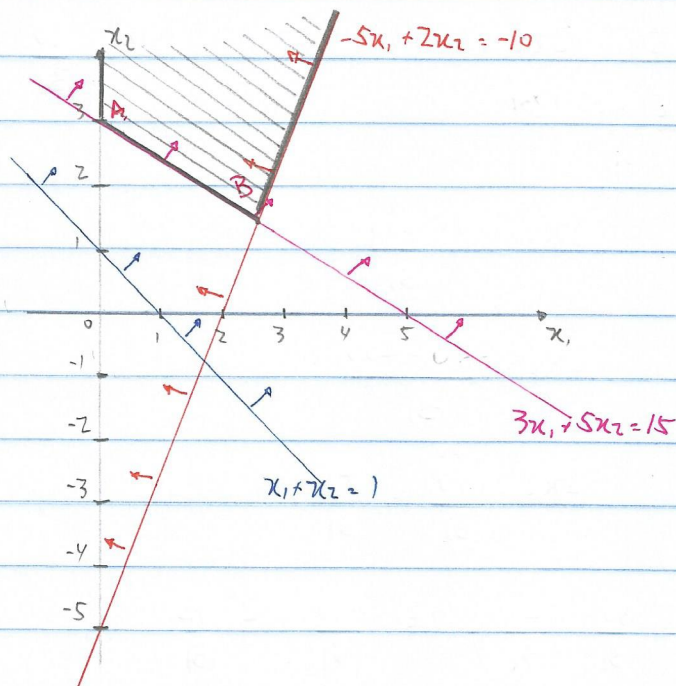 x₂
-5x₁ + 2x₂ = -10
3
A
2
B
1
0
1
2
3
4
5
x₁
-1
-2
3x₁ + 5x₂ = 15
-3
x₁ + x₂ = 1
-4
-5